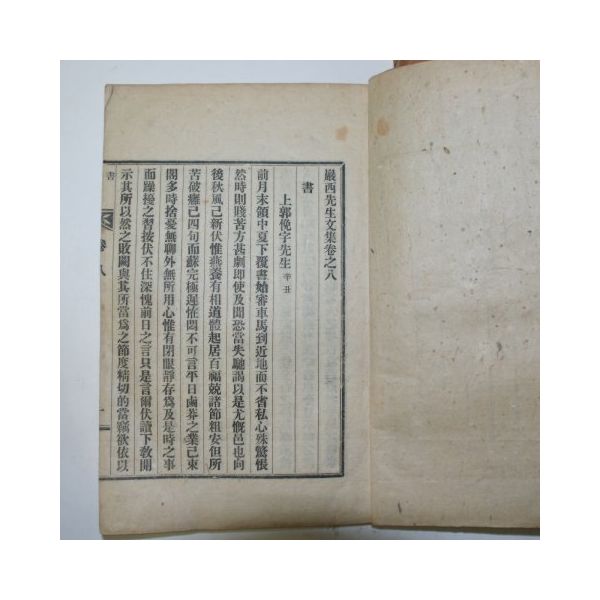 巖西先生文集卷之八
書
上郭俛宇先生 辛丑
前月末領中夏下覆書始審車馬到近地而不省私心殊驚悵
然時則賤苦方甚劇即使及聞恐當失馳謁以是尤慨邑也向
後秋風已新伏惟燕養有相道體起居百福兢諸節粗安但所
苦破癰已四旬而蘇完極遲惟悶不可言平日鹵莽之業已束
閣多時捨憂無聊外無所用心惟有閉眼靜存爲及是時之事
而躁擾之習按伏不住深愧前日之言只是言爾伏讀下敎開
示其所以然之敗闕與其所當爲之節度精切的當竊欲依以
書
卷八
一